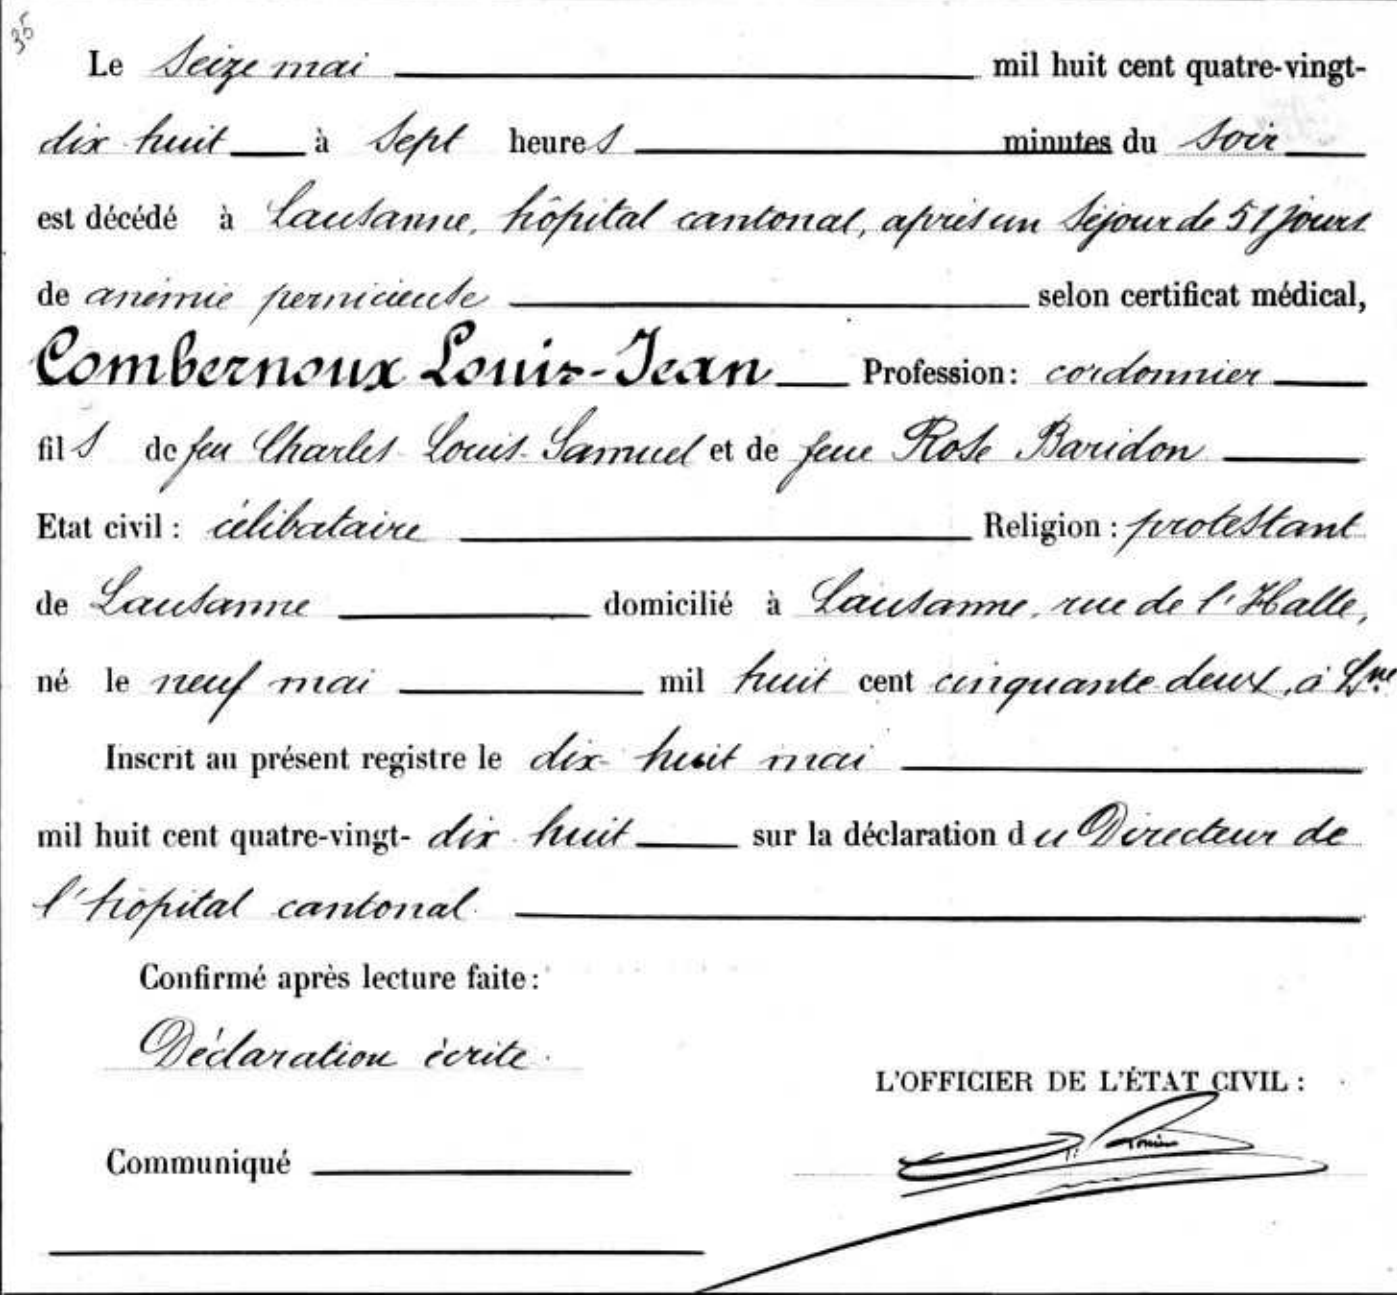 35
Le Seize mai mil huit cent quatre-vingt-
dix huit à Sept heures minutes du Soir
est décédé à Lausanne, hôpital cantonal, après un Séjour de 51 jours
de anémie pernicieuse selon certificat médical,
Combernoux Louis-Jean Profession: cordonnier
fils de feu Charles-Louis-Samuel et de feue Rose Baridon
Etat civil: célibataire Religion: protestant
de Lausanne domicilié à Lausanne, rue de l'Halle,
né le neuf mai mil huit cent cinquante-deux, à Lne
Inscrit au présent registre le dix-huit mai
mil huit cent quatre-vingt-dix huit sur la déclaration du Directeur de
l'hôpital cantonal.
Confirmé après lecture faite:
Déclaration écrite.
L'OFFICIER DE L'ÉTAT CIVIL:
Communiqué